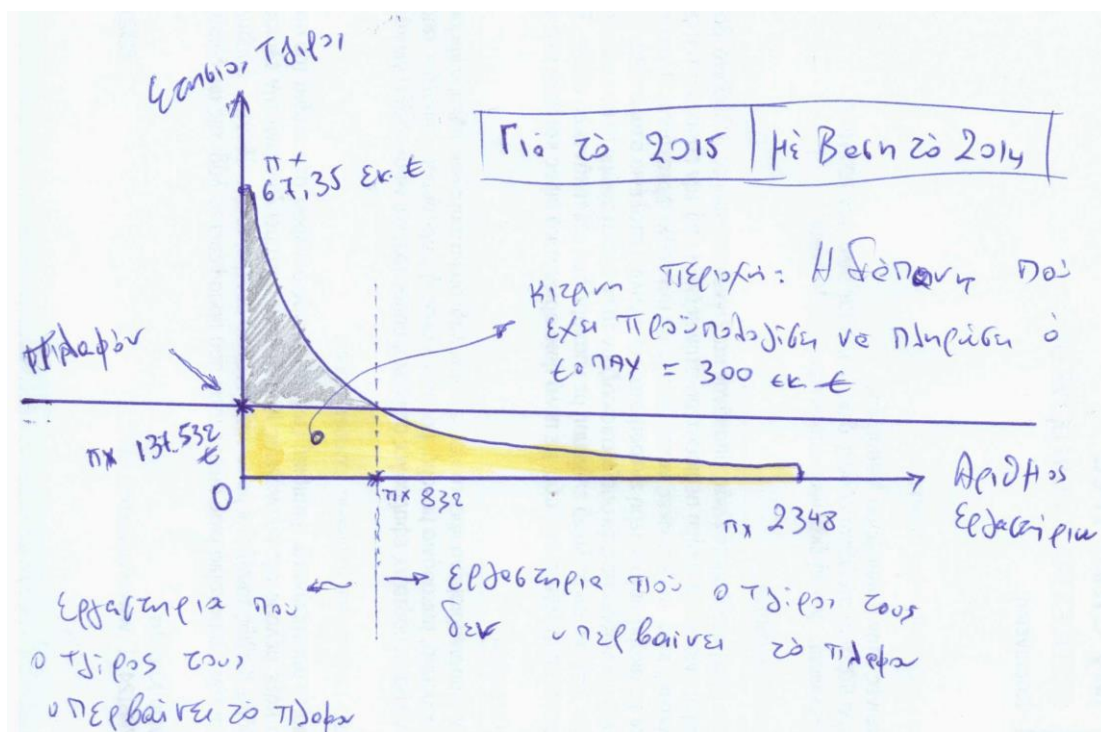 Ετησιος Τζιρος
Για το 2015 | Με Βαση το 2014
πχ
67,35 εκ €
Κιτρινη περιοχη: Η δαπανη που
εχει προϋπολογισει να πληρωσει ο
ΕΟΠΑΥ = 300 εκ €
Πλαφον
πχ 137.532
€
0
πχ 832
πχ 2348
Αριθμος
Εργαστηριων
Εργαστηρια που
ο τζιρος τους
υπερβαινει το πλαφον
Εργαστηρια που ο τζιρος τους
δεν υπερβαινει το πλαφον